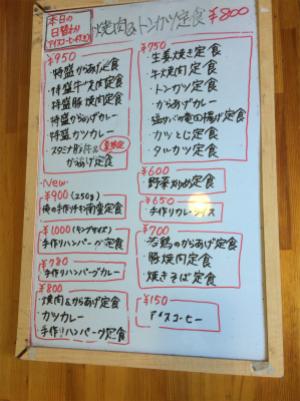 本日の
日替わり
焼肉&トンカツ定食 ¥800
¥950
特盛からあげ定食
特盛牛焼肉定食
特盛豚焼肉定食
特盛からあげカレー
特盛カツカレー
からあげ定食
¥750
生姜焼き定食
牛焼肉定食
トンカツ定食
からあげカレー
竜田揚げ定食
カツとじ定食
タレカツ定食
New
¥900(250g)
俺の手作りチキン南蛮定食
¥1,000(キングサイズ)
手作りハンバーグ定食
¥780
手作りハンバーグカレー
¥800
焼肉&からあげ定食
カツカレー
手作りハンバーグ定食
¥600
野菜炒め定食
¥650
手作りカレーライス
¥700
若鶏のからあげ定食
豚焼肉定食
焼きそば定食
¥150
アイスコーヒー